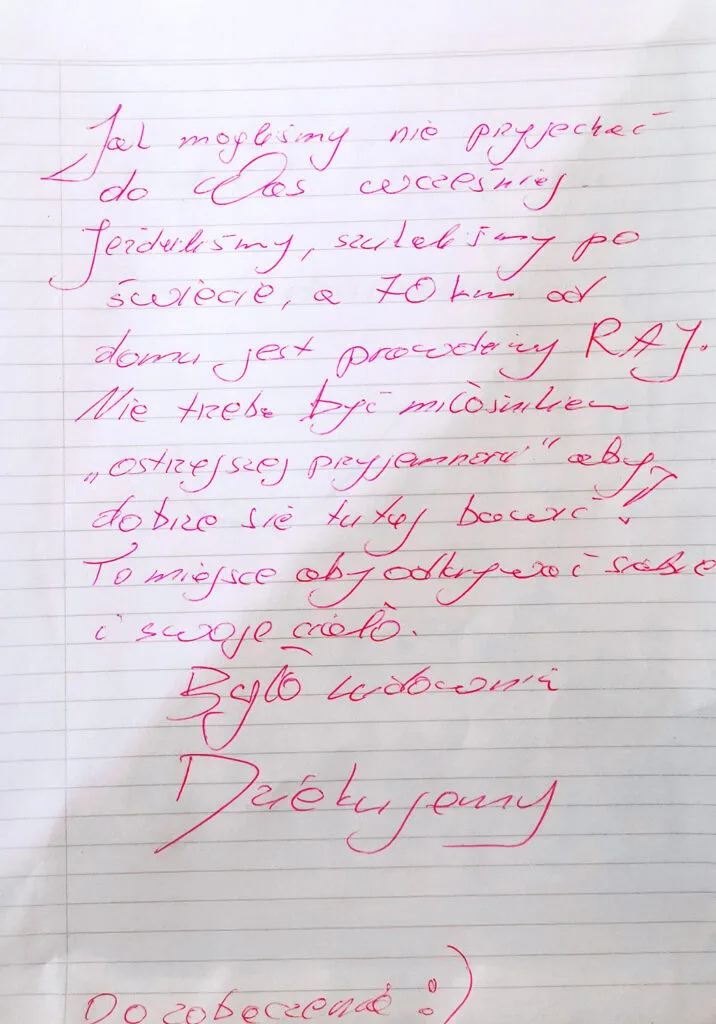 Jak mogliśmy nie przyjechać
do Was wcześniej.
Jeździliśmy, szukaliśmy po
świecie, a 70 km od
domu jest prawdziwy RAJ.
Nie trzeba być miłośnikiem
„ostrzejszej przyjemności" aby
dobrze się tutaj bawić!
To miejsce aby odkrywać siebie
i swoje ciało.
Było cudownie
Dziękujemy
Do zobaczenia :)